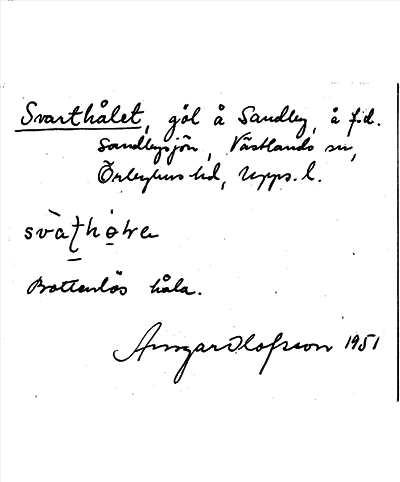 Svarthålet, göl å Sandby, å f.d.
Sandbysjön, Västlands sn,
Örbyhus hd, Upps. l.
Bottenlös håla.
Ansgar Olofsson 1951